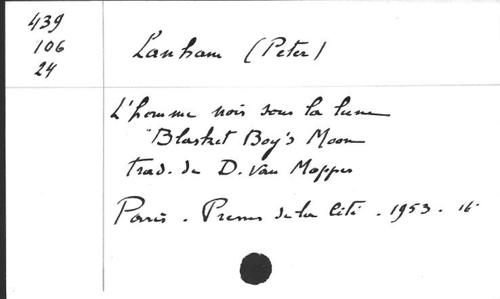 439
106
24
Lanham (Peter)
L'homme noir sous la lune
"Blasket Boy's Moon
trad. de D. Van Moppes
Paris. Presses de la Cité. 1953. 16